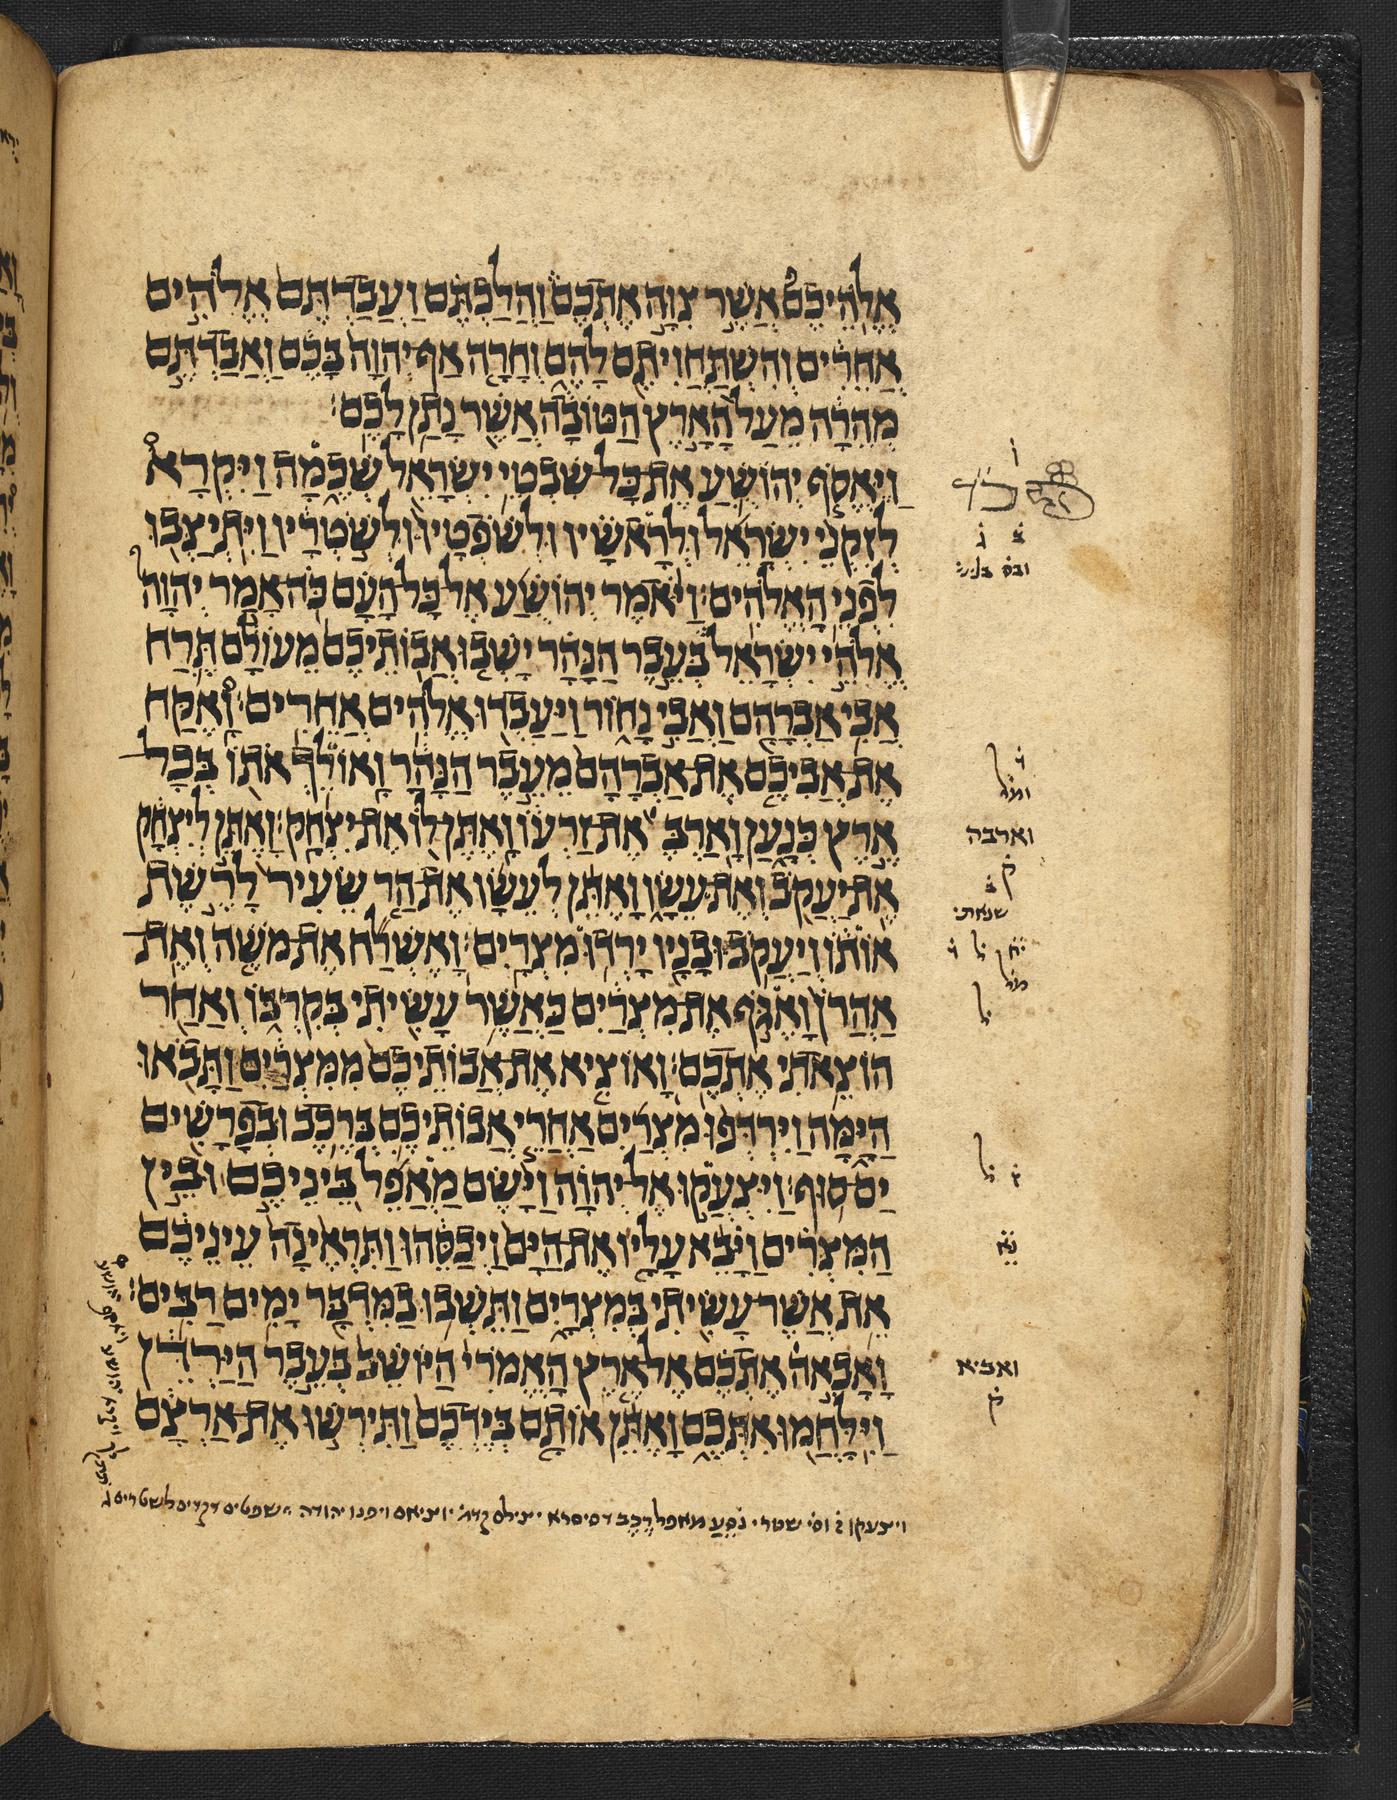 אֱלֹהֵיכֶם אֲשֶׁר צִוָּה אֶתְכֶם וַהֲלַכְתֶּם וַעֲבַדְתֶּם אֱלֹהִים
אֲחֵרִים וְהִשְׁתַּחֲוִיתֶם לָהֶם וְחָרָה אַף יְהוָה בָּכֶם וַאֲבַדְתֶּם
מְהֵרָה מֵעַל הָאָרֶץ הַטּוֹבָה אֲשֶׁר נָתַן לָכֶם׃
וַיֶּאֱסֹף יְהוֹשֻׁעַ אֶת כָּל שִׁבְטֵי יִשְׂרָאֵל שְׁכֶמָה וַיִּקְרָא
לְזִקְנֵי יִשְׂרָאֵל וּלְרָאשָׁיו וּלְשֹׁפְטָיו וּלְשֹׁטְרָיו וַיִּתְיַצְּבוּ
לִפְנֵי הָאֱלֹהִים׃ וַיֹּאמֶר יְהוֹשֻׁעַ אֶל כָּל הָעָם כֹּה אָמַר יְהוָה
אֱלֹהֵי יִשְׂרָאֵל בְּעֵבֶר הַנָּהָר יָשְׁבוּ אֲבוֹתֵיכֶם מֵעוֹלָם תֶּרַח
אֲבִי אַבְרָהָם וַאֲבִי נָחוֹר וַיַּעַבְדוּ אֱלֹהִים אֲחֵרִים׃ וָאֶקַּח
אֶת אֲבִיכֶם אֶת אַבְרָהָם מֵעֵבֶר הַנָּהָר וָאוֹלֵךְ אֹתוֹ בְּכָל
אֶרֶץ כְּנָעַן וָאַרְבֶּ אֶת זַרְעוֹ וָאֶתֶּן לוֹ אֶת יִצְחָק׃ וָאֶתֵּן לְיִצְחָק
אֶת יַעֲקֹב וְאֶת עֵשָׂו וָאֶתֵּן לְעֵשָׂו אֶת הַר שֵׂעִיר לָרֶשֶׁת
אוֹתוֹ וְיַעֲקֹב וּבָנָיו יָרְדוּ מִצְרָיִם׃ וָאֶשְׁלַח אֶת מֹשֶׁה וְאֶת
אַהֲרֹן וָאֶגֹּף אֶת מִצְרַיִם כַּאֲשֶׁר עָשִׂיתִי בְּקִרְבּוֹ וְאַחַר
הוֹצֵאתִי אֶתְכֶם׃ וָאוֹצִיא אֶת אֲבוֹתֵיכֶם מִמִּצְרַיִם וַתָּבֹאוּ
הַיָּמָּה וַיִּרְדְּפוּ מִצְרַיִם אַחֲרֵי אֲבוֹתֵיכֶם בְּרֶכֶב וּבְפָרָשִׁים
יַם סוּף׃ וַיִּצְעֲקוּ אֶל יְהוָה וַיָּשֶׂם מַאֲפֵל בֵּינֵיכֶם וּבֵין
הַמִּצְרִים וַיָּבֵא עָלָיו אֶת הַיָּם וַיְכַסֵּהוּ וַתִּרְאֶינָה עֵינֵיכֶם
אֵת אֲשֶׁר עָשִׂיתִי בְּמִצְרָיִם וַתֵּשְׁבוּ בַמִּדְבָּר יָמִים רַבִּים׃
וָאָבִאָה אֶתְכֶם אֶל אֶרֶץ הָאֱמֹרִי הַיּוֹשֵׁב בְּעֵבֶר הַיַּרְדֵּן
וַיִּלָּחֲמוּ אִתְּכֶם וָאֶתֵּן אוֹתָם בְּיֶדְכֶם וַתִּירְשׁוּ אֶת אַרְצָם
כד
וארבה
ק
שנאתי
ואביא
ק